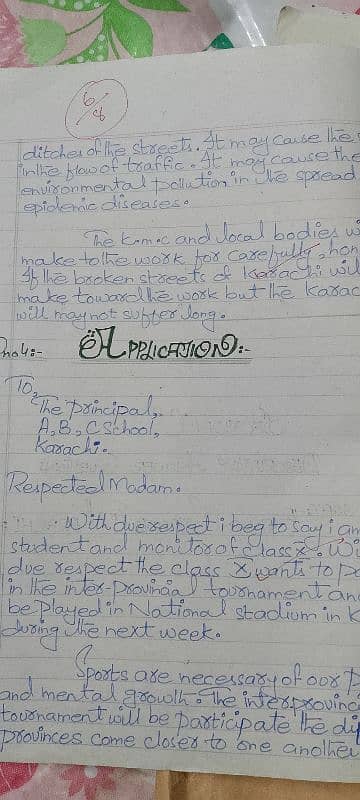 6/8
ditches of the streets. It may cause the
in the flow of traffic. It may cause the
environmental pollution in the spread
epidemic diseases.
The K.m.c and local bodies wi
make to the work for carefully, hon
If the broken streets of Karachi will
make toward the work but the Karac
will may not suffer long.
no4:- APPLICATION:-
To,
The principal,
A,B,C School,
Karachi.
Respected Madam.
With due respect i beg to say i am
student and monitor of class X. Wi
due respect the class X wants to pa
in the inter-provincial tournament an
be played in National stadium in K
during the next week.
Sports are necessary of our p
and mental growth. The interprovinc
tournament will be participate the di
provinces come closer to one another